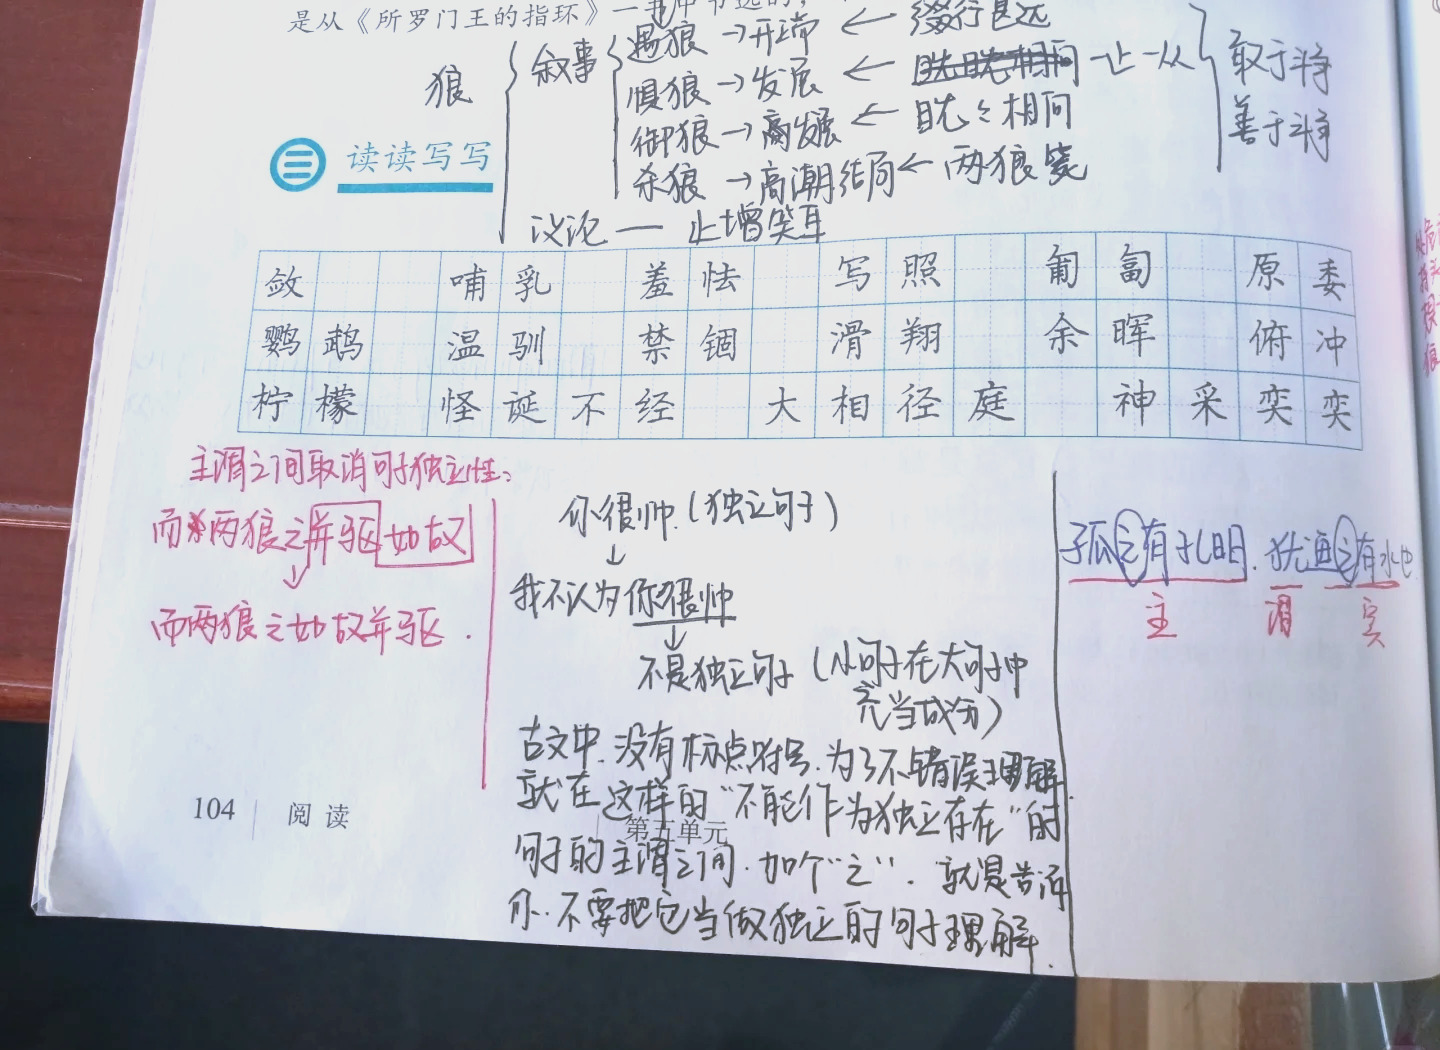 是从《所罗门王的指环》一书中节选的，
狼
叙事
遇狼→开端←缀行甚远
惧狼→发展← 一止一从
御狼→高发展←眈々相向
杀狼→高潮结局←两狼毙
议论——止增笑耳
敢于斗
善于斗
读读写写
敛 哺乳 羞怯 写照 匍匐 原委
鹦鹉 温驯 禁锢 滑翔 余晖 俯冲
柠檬 怪诞不经 大相径庭 神采奕奕
主谓之间取消句子独立性：
而两狼之并驱如故
↓
而两狼之如故并驱．
你很帅．（独立句子）
↓
我不认为你很帅
↓
不是独立句子（小句子在大句子中
充当成分）
古文中．没有标点符号．为了不错误理解
就在这样的“不能作为独立存在”的
句子的主谓之间．加个“之”．就是告诉
你．不要把它当做独立的句子理解．
孤之有孔明．犹鱼之有水也．
主 谓 宾
104 阅读
第五单元